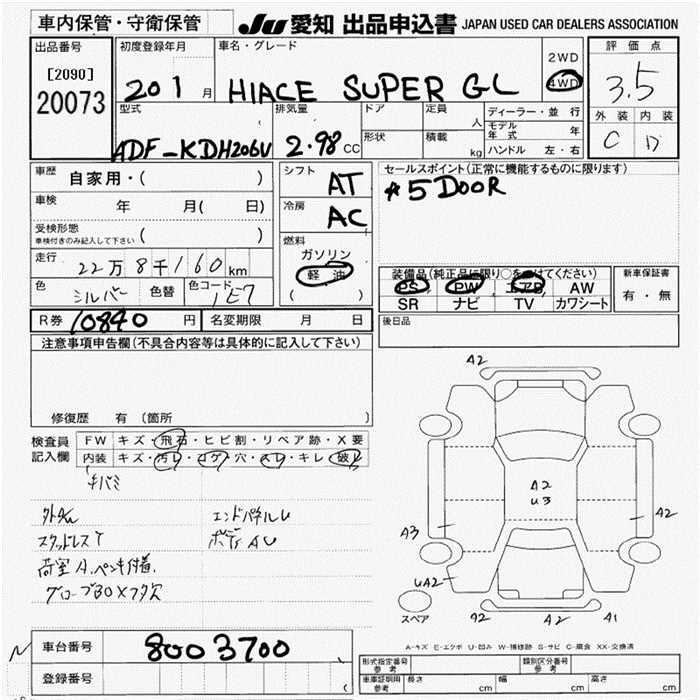 車内保管・守衛保管
JU 愛知 出品申込書 JAPAN USED CAR DEALERS ASSOCIATION
出品番号
[2090]
20073
初度登録年月
201 月
車名・グレード
HIACE SUPER GL
2WD
4WD
評価点
3.5
外装 内装
C D
型式
ADF-KDH206V
排気量
2.98 CC
ドア
形状
定員
人
積載
kg
ディーラー・並行
モデル年式 年
ハンドル 左・右
車歴 自家用・( )
車検 年 月( 日)
受検形態
車検付きのみ記入して下さい ( )
走行 22万8千160 km
色 シルバー 色替 色コード 1E7
シフト AT
冷房 AC
燃料
ガソリン
軽油
( )
セールスポイント(正常に機能するものに限ります)
*5DOOR
装備品(純正品に限り○をつけてください)
PS PW エアB AW
SR ナビ TV カワシート
新車保証書
有・無
R券 10840 円 名変期限 月 日
後日品
注意事項申告欄(不具合内容等は具体的に記入して下さい)
修復歴 有 (箇所 )
検査員記入欄
FW キズ・飛石・ヒビ割・リペア跡・X要
内装 キズ・汚レ・コゲ・穴・スレ・キレ・破レ
キバミ
スタッドレスT
荷室A.ペンキ付着.
グローブBOXフタ欠
エンドパネルU
ボディAU
A2
A2
U3
A3
A2
UA2
A2
A2
A1
スペア
A-キズ E-エクボ U-凹み W-補修跡 S-サビ C-腐食 XX-交換済
車台番号 8003700
登録番号
形式指定番号 参考
類別区分番号 参考
車庫証明用 参考 長さ cm 幅 cm 高さ cm